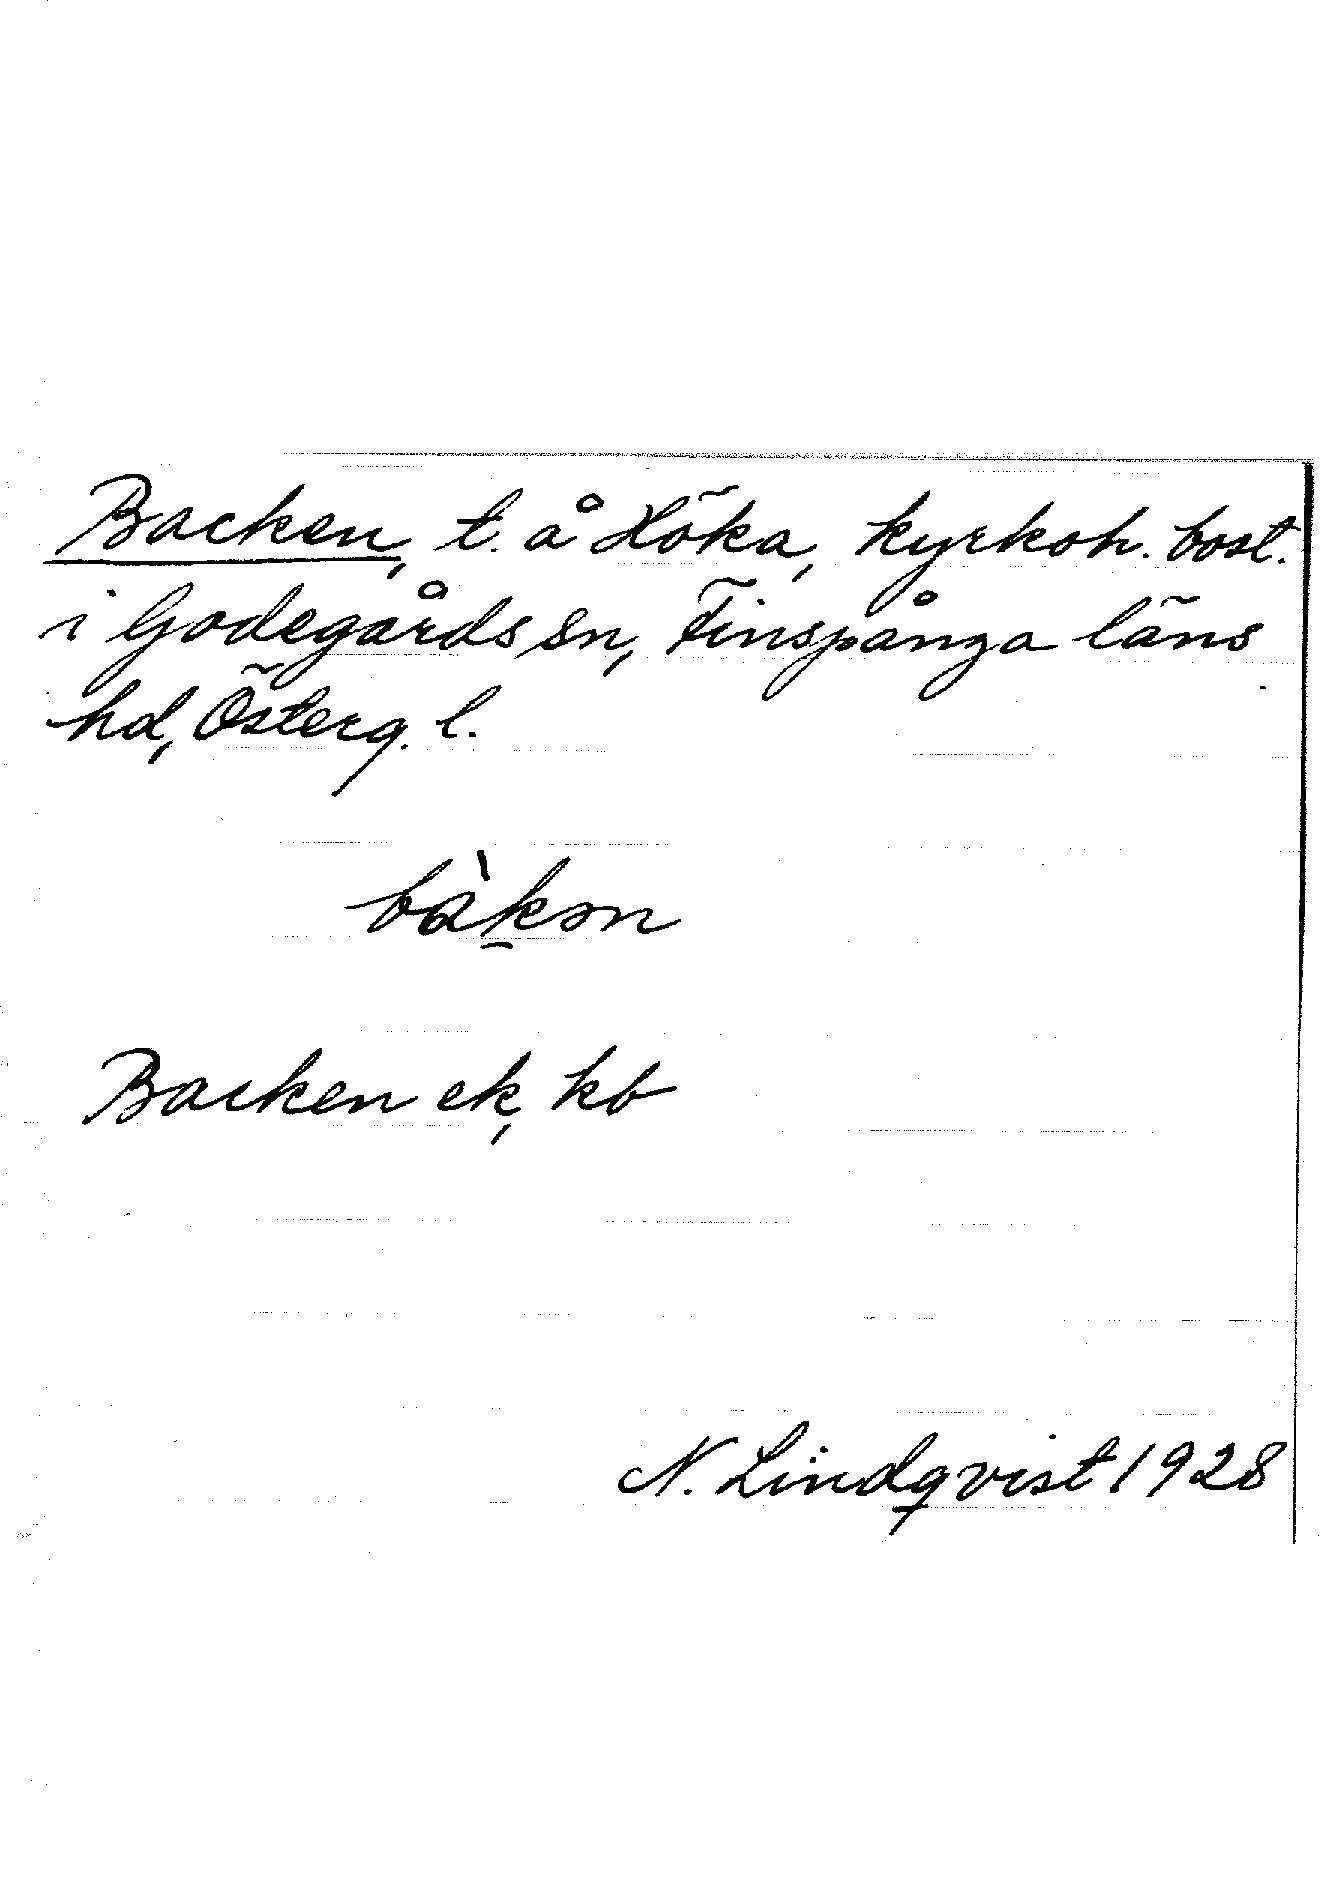 Backen, t. å Höka, kyrkoh. bost.
i Godegårds sn, Finspånga läns
hd, Österg. l.
bàk̲ən
Backen ek, kb
N. Lindqvist 1928